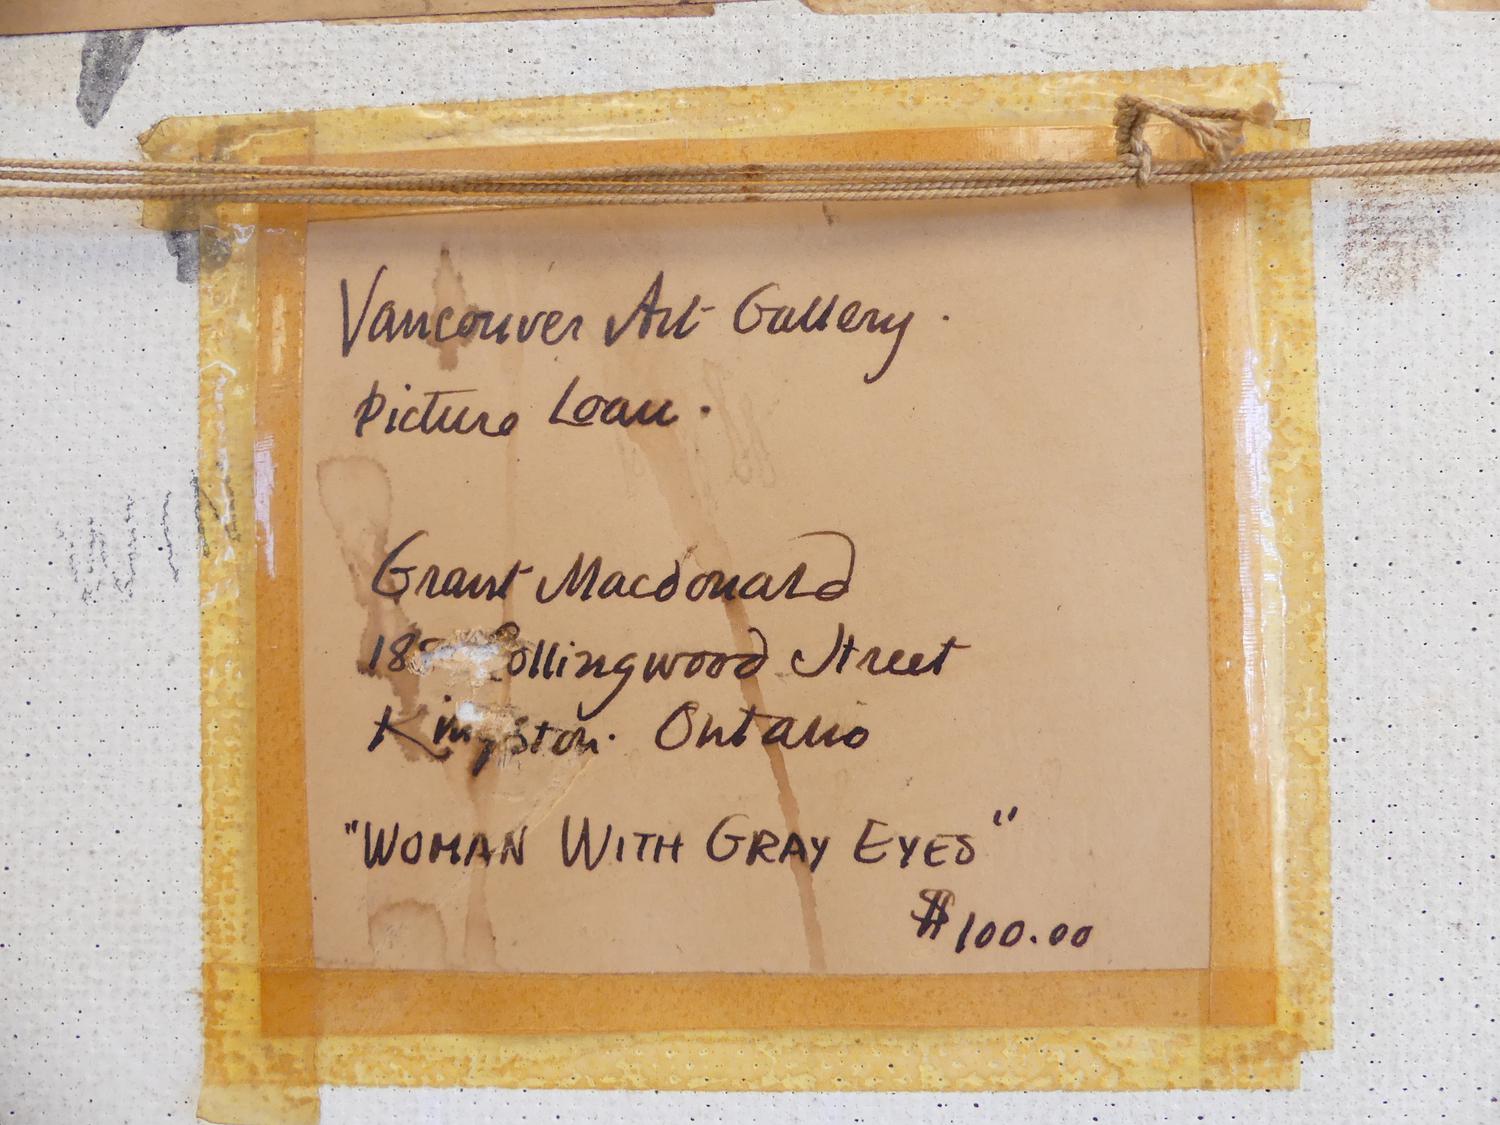 Vancouver Art Gallery.
Picture Loan.
Grant Macdonald
Collingwood Street
Kingston. Ontario
"WOMAN WITH GRAY EYES"
$100.00